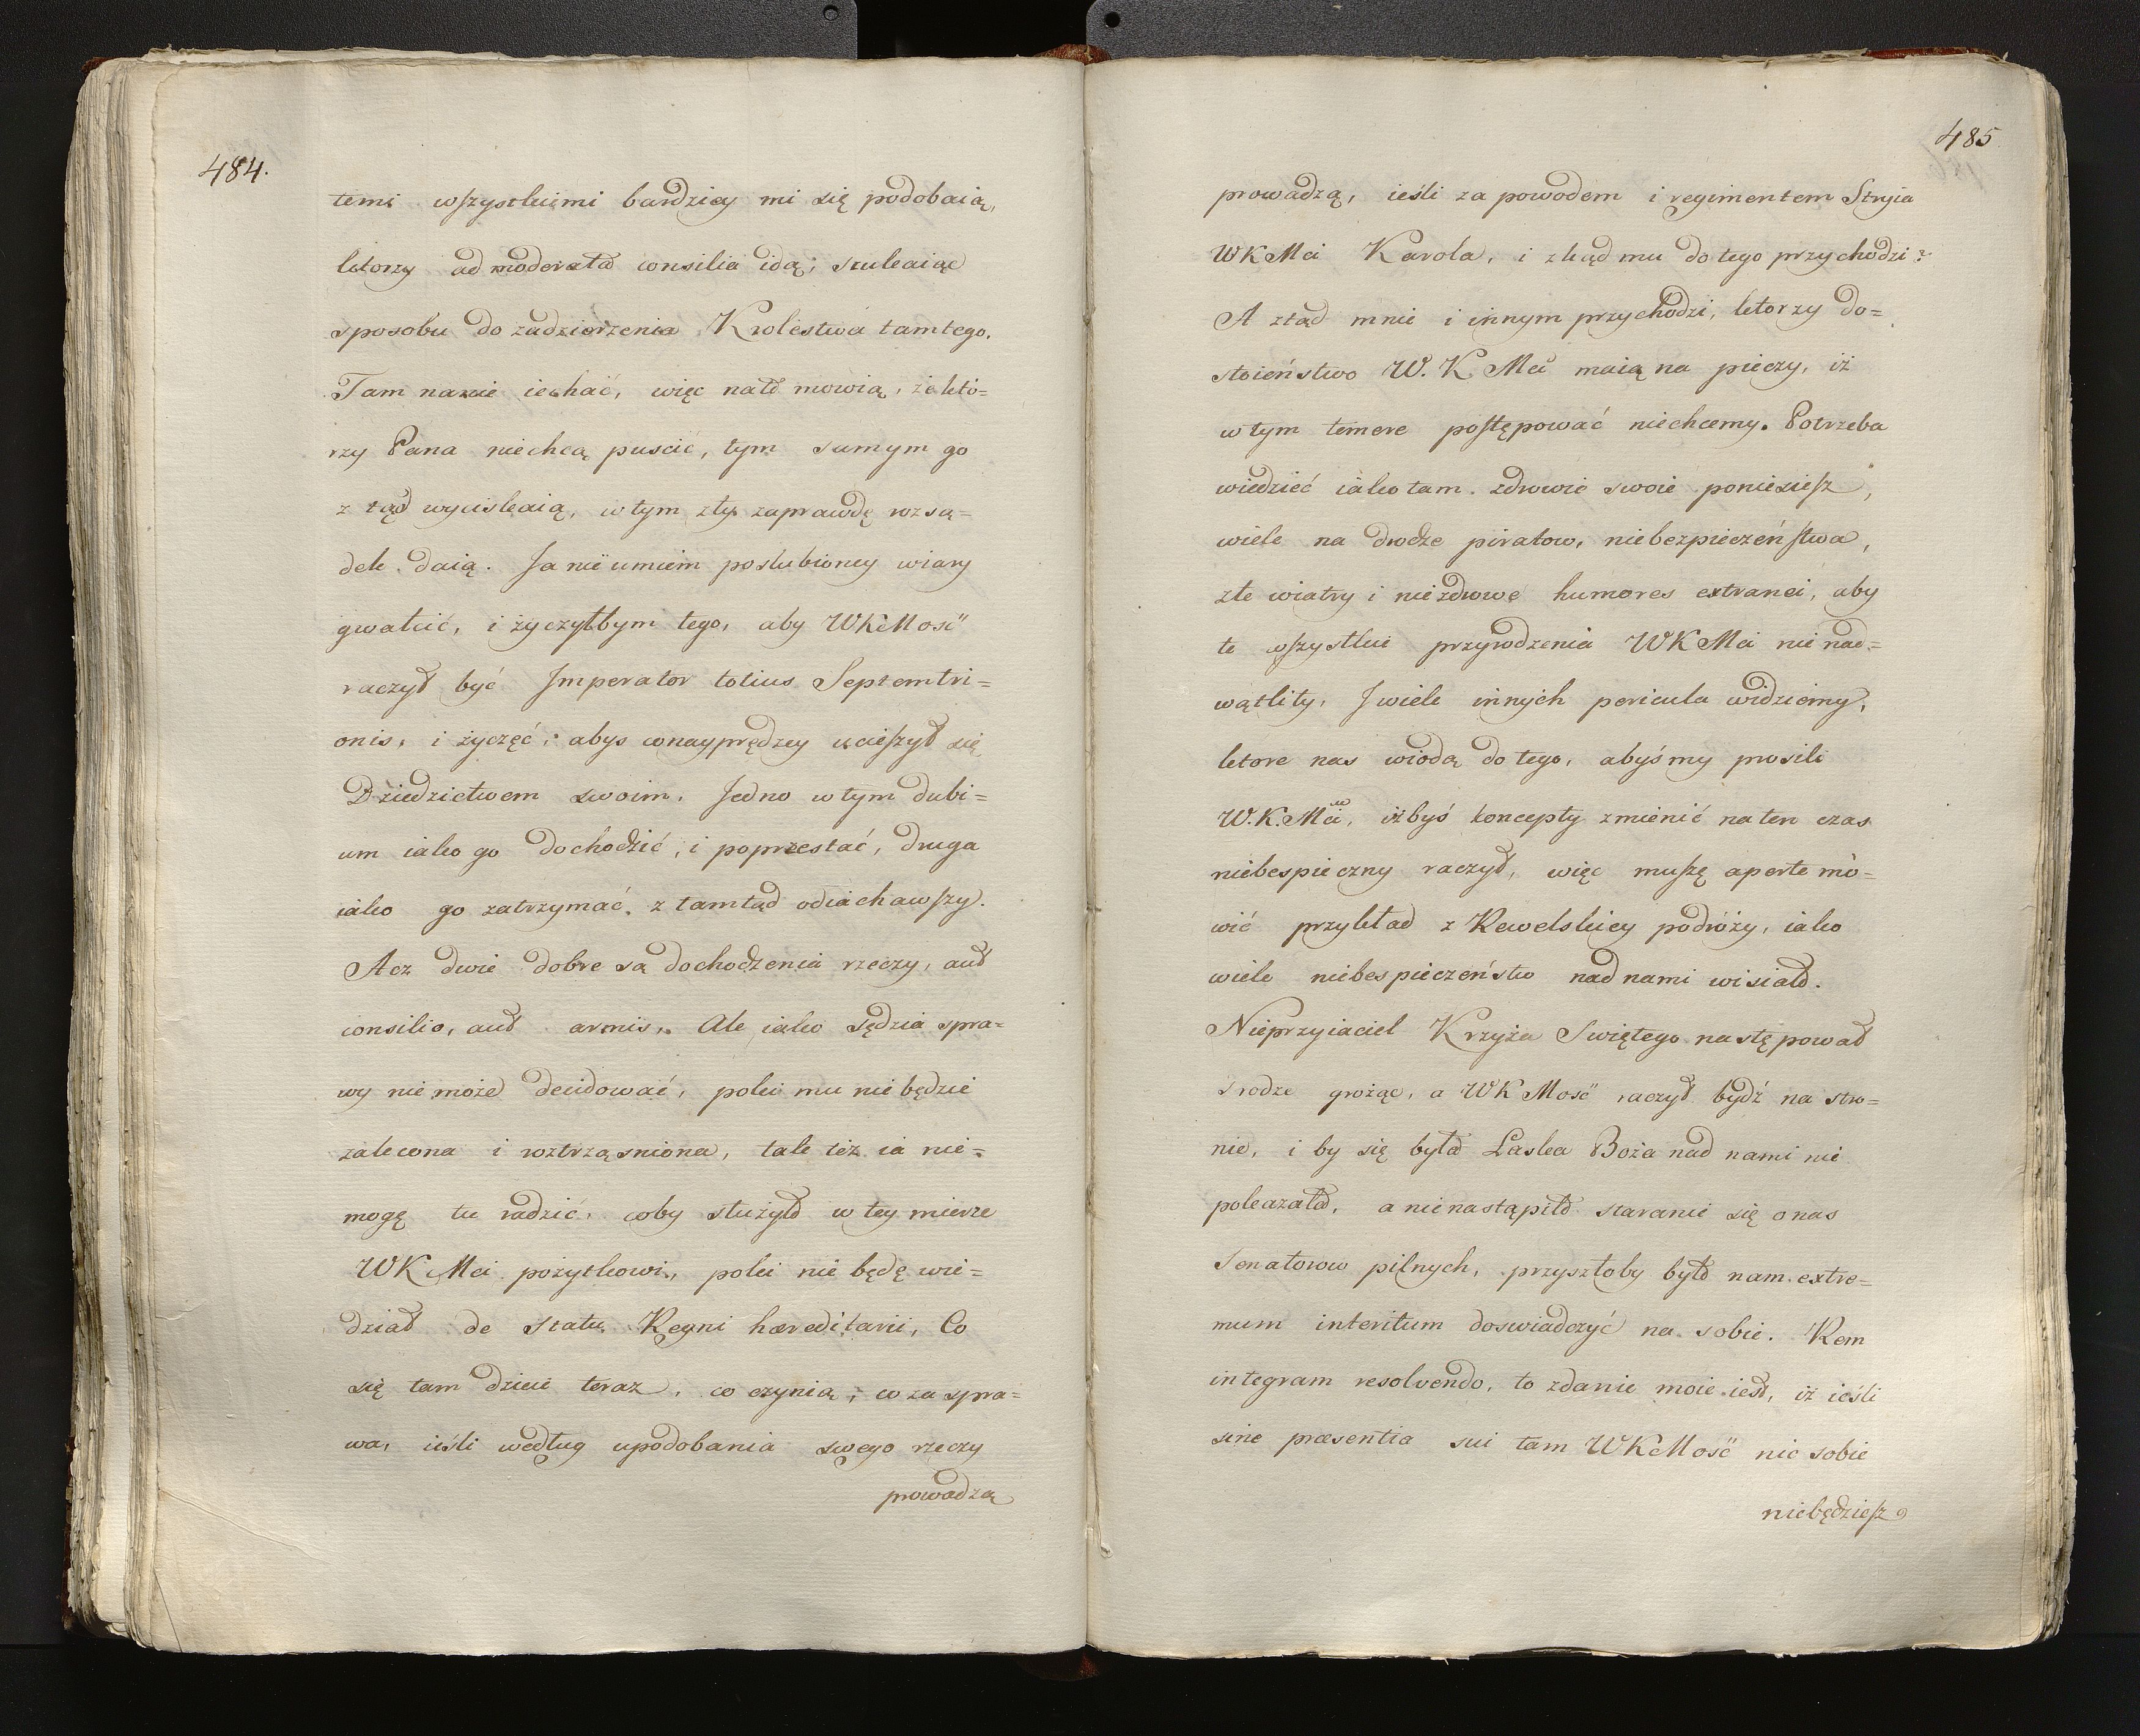 484.
temi wszystkiemi bardziey mi się podobaią,
ktorzy ad moderata consilia idą; szukaiąc
sposobu do zadzierżenia Krolestwa tamtego.
Tam nazcie iechać, więc nato mowią, że któ=
rzy Pana niechcą puscić, tym samym go
z tąd wyciskaią, w tym zły zaprawdę rozsą=
dek daią. Ja nie umiem poslubioney wiary
gwałcić, i życzyłbym tego, aby WKMosć
raczył być Imperator totius Septemtri=
onis, i życzęć; abys conayprędzey ucieszył się
Dziedzictwem swoim. Jedno w tym dubi=
um iako go dochodzić, i poprzestać, druga
iako go zatrzymać, z tamtąd odiachawszy.
Acz dwie dobre są dochodzenia rzeczy, aut
consilio, aut armis. Ale iako Sędzia spra=
wy nie może decidować, poki mu nie będzie
zalecona i roztrząsniona, tak też ia nie=
mogę tu radzić, coby służyło w tey mierze
WKMci pożytkowi, poki nie będę wie=
dział de statu Regni hæreditarii, Co
się tam dzieie teraz, co czynią, co za spra=
wa, ieśli według upodobania swego rzeczy
prowadzą
485
prowadzą, ieśli za powodem i regimentem Stryia
WKMci Karola, i zkąd mu do tego przychodzi?
A ztąd mnie i innym przychodzi, ktorzy do=
stoieństwo W. K Mci maią na pieczy, iż
w tym temere postępować niechcemy. Potrzeba
wiedzieć iako tam zdrowie swoie poniesiesz,
wiele na drodze piratow, niebezpieczeństwa,
złe wiatry i niezdrowe humores extranei, aby
te wszystkie przyrodzenia WKMci nie nad=
wątliły. I wiele innych pericula widziemy,
ktore nas wiodą do tego, abyśmy prosili
W.K.Mci, iżbyś koncepty zmienić na ten czas
niebespieczny raczył, więc muszę aperte mó=
wić przykład z Rewelskiey podróży, iako
wiele niebespieczeństw nad nami wisiało.
Nieprzyiaciel Krzyża Swiętego następował
srodze grożąc, a WKMosć raczył bydź na stro=
nie, i by się była Łaska Boża nad nami nie
pokazała, a nienastąpiło staranie się o nas
Senatorow pilnych, przyszłoby było nam extre=
mum interitum doswiadczyć na sobie. Rem
integram resolvendo, to zdanie moie iest, iż ieśli
sine præsentia sui tam WKMosć nic sobie
niebędziesz